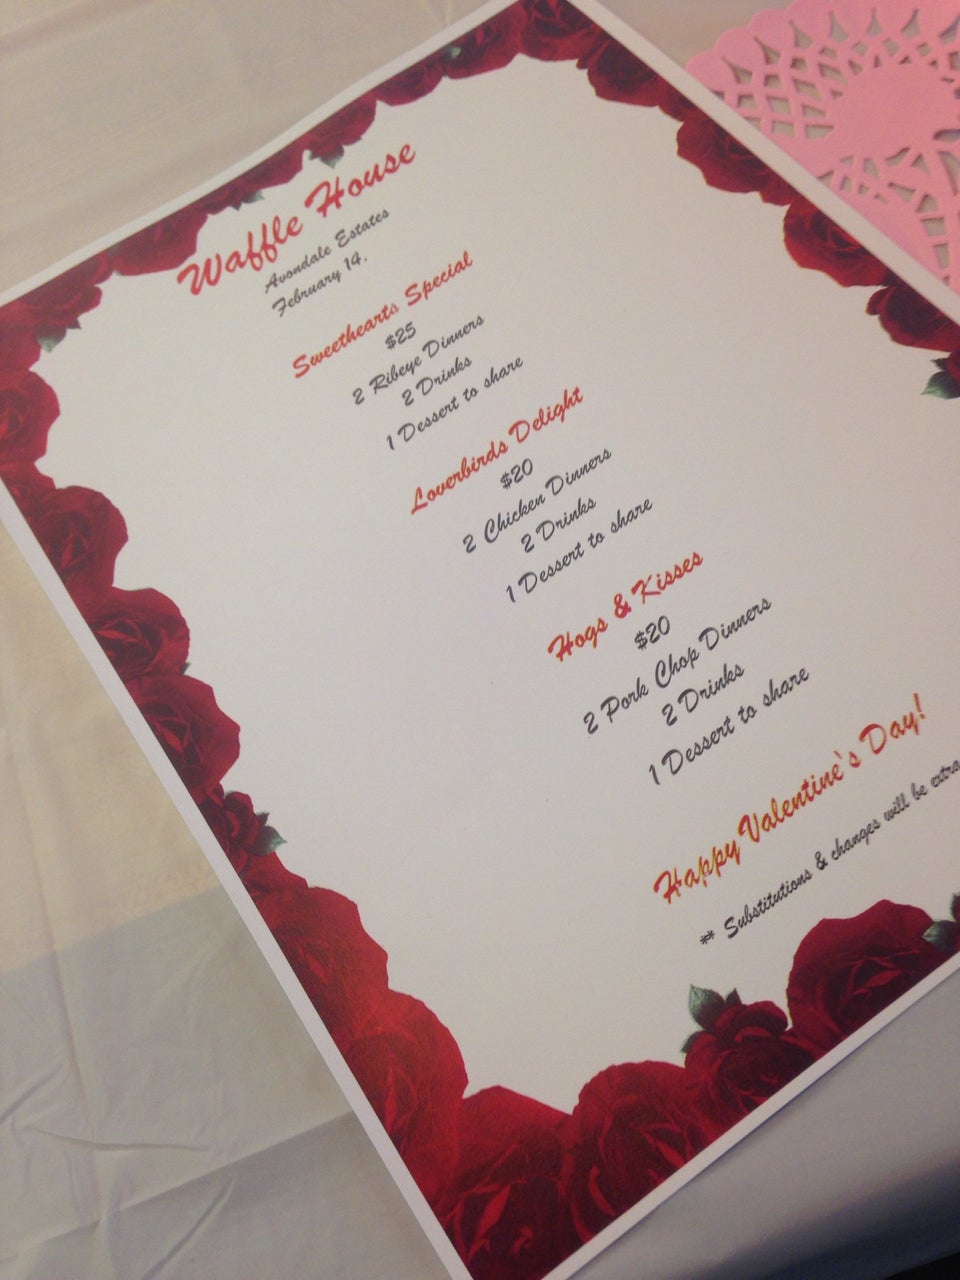 Waffle House
Avondale Estates
February 14.
Sweethearts Special
$25
2 Ribeye Dinners
2 Drinks
1 Dessert to share
Loverbirds Delight
$20
2 Chicken Dinners
2 Drinks
1 Dessert to share
Hogs & Kisses
$20
2 Pork Chop Dinners
2 Drinks
1 Dessert to share
Happy Valentine's Day!
* Substitutions & changes will be extra